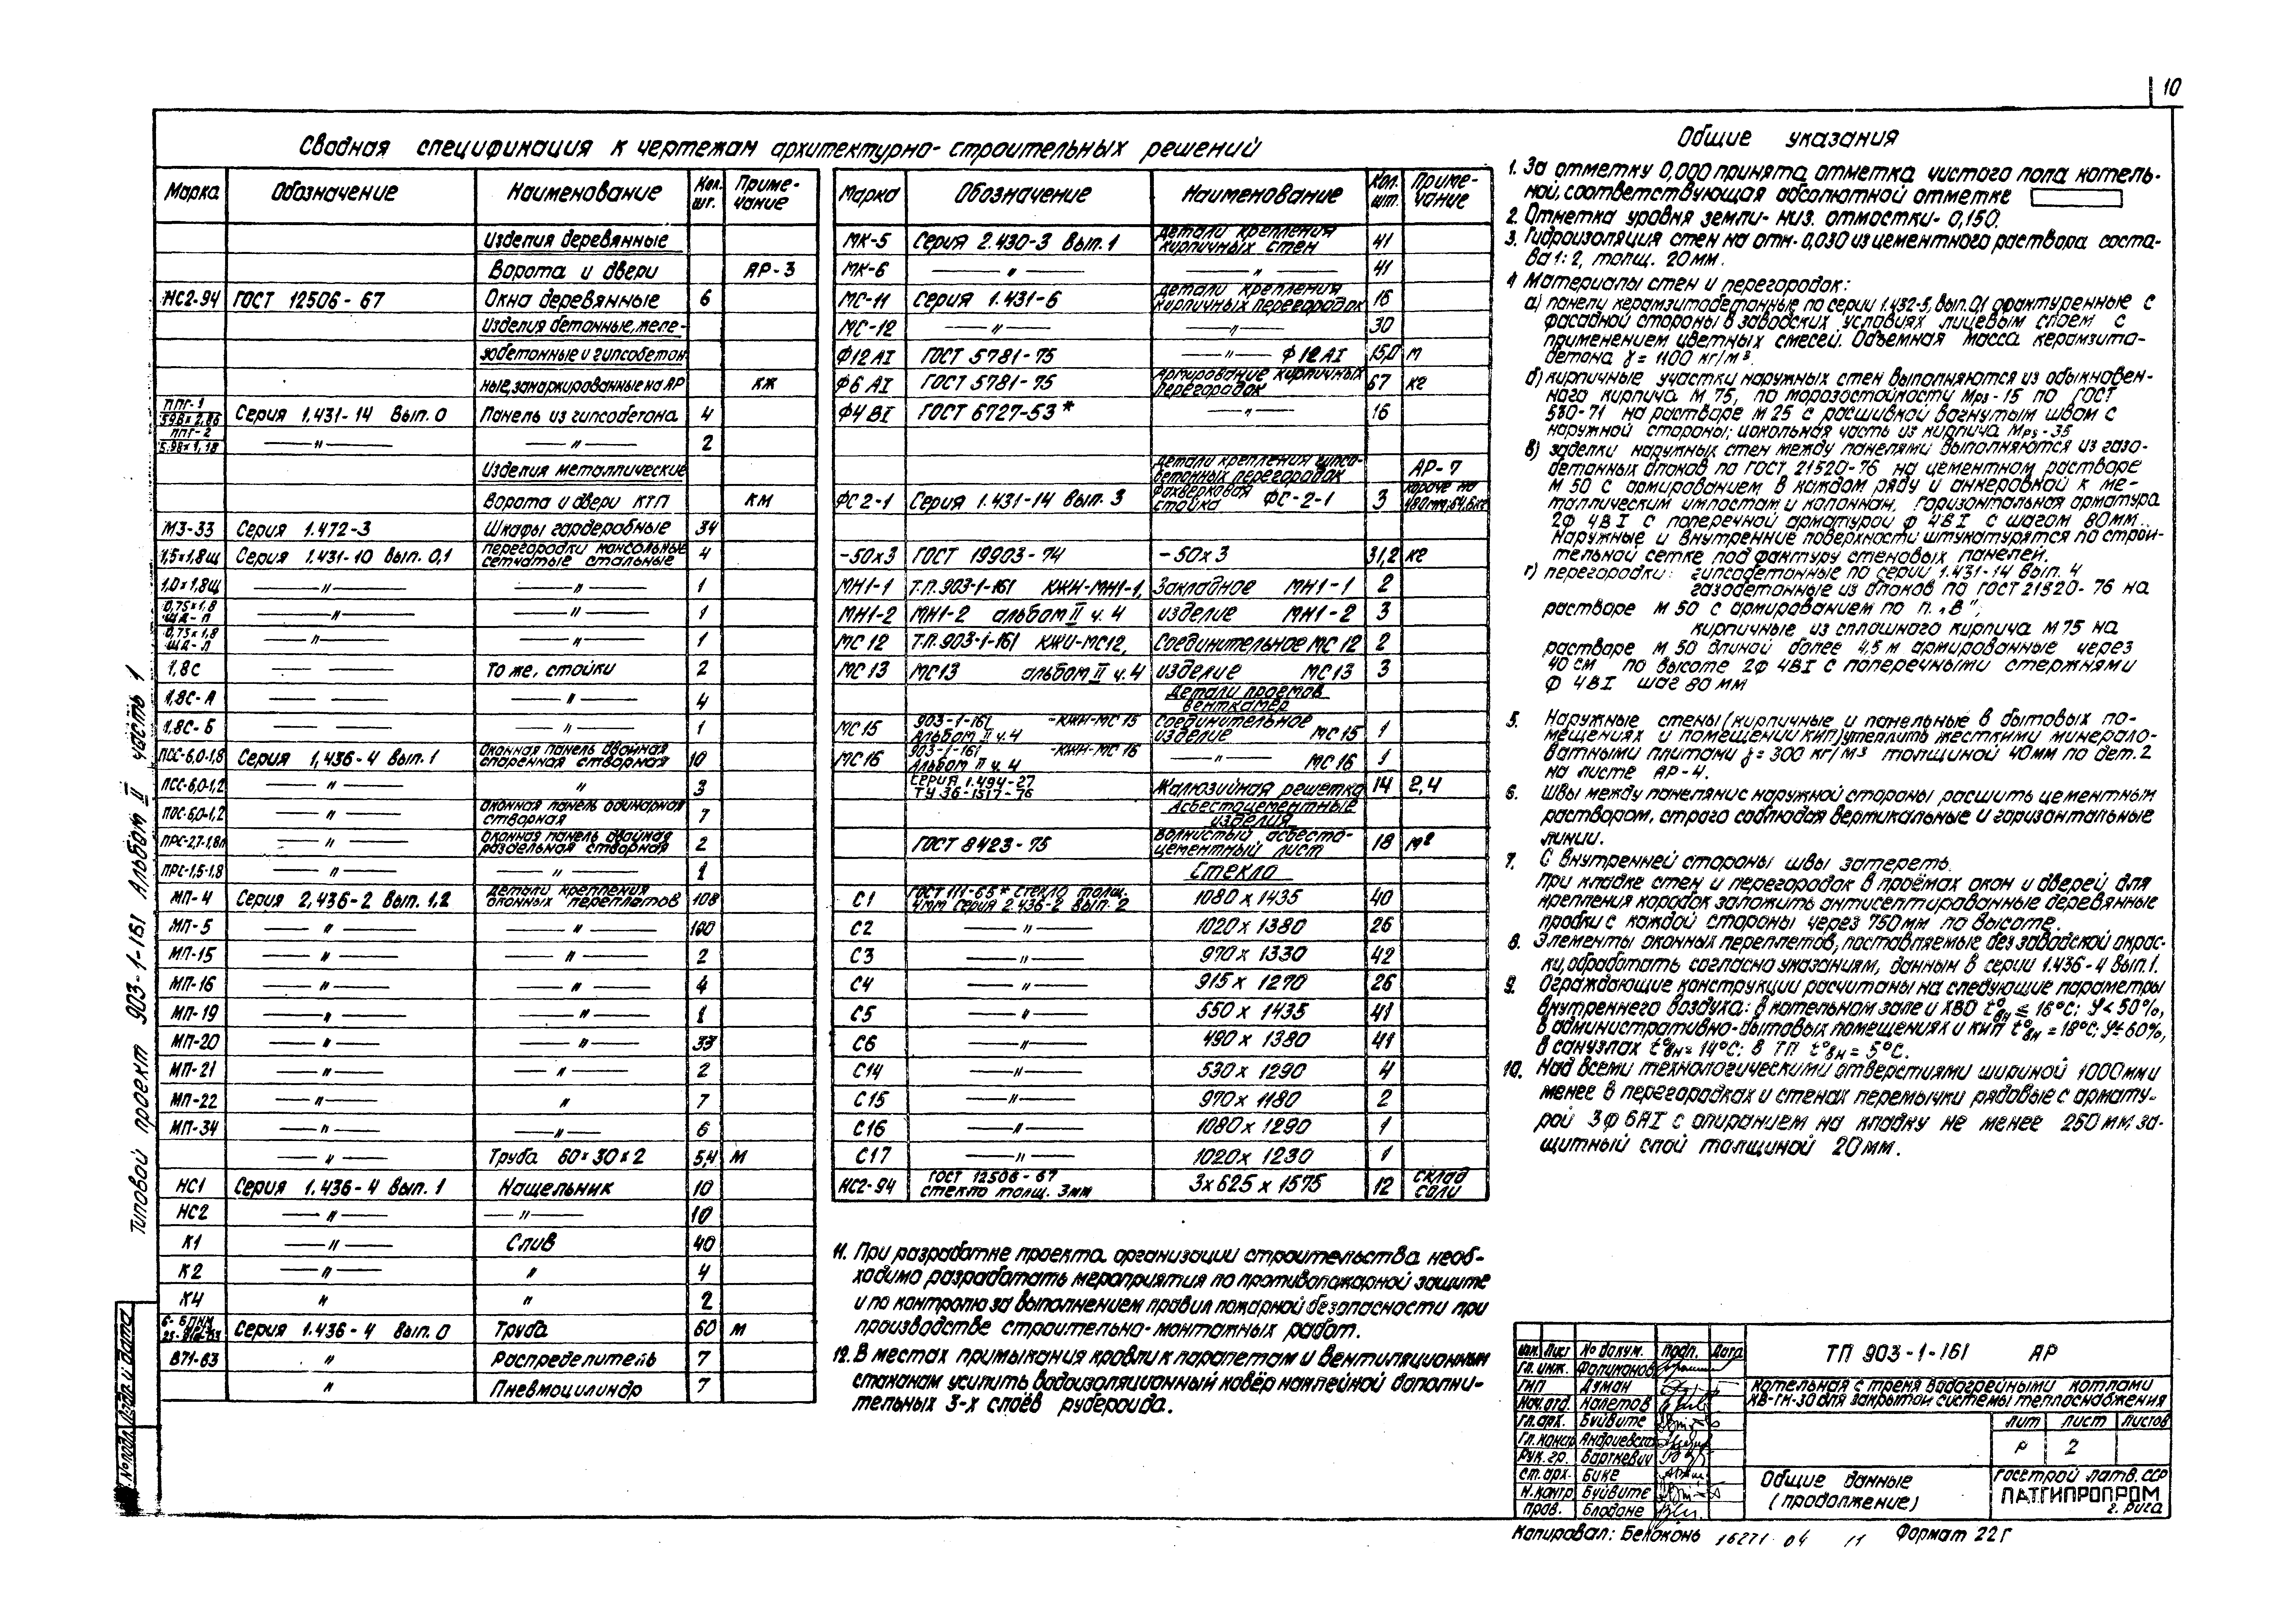 10
Сводная спецификация к чертежам архитектурно-строительных решений
Марка Обозначение Наименование Кол. шт. Приме-чание
Изделия деревянные
Ворота и двери АР-3
НС2-94 ГОСТ 12506-67 Окна деревянные 6
Изделия бетонные, желе-
зобетонные и гипсобетон
ные, замаркированные на АР КЖ
ППГ-1 5.98×2.86 Серия 1.431-14 вып. 0 Панель из гипсобетона 4
ППГ-2 5.98×1,18 —〃— —〃— 2
Изделия металлические
Ворота и двери КТП КМ
МЗ-33 Серия 1.472-3 Шкафы гардеробные 34
1,5×1,8щ Серия 1.431-10 вып. 0,1 перегородки консольные сетчатые стальные 4
1,0×1,8щ —〃— —〃— 1
0,75×1,8 ЩД-П —〃— —〃— 1
0,75×1,8 ЩД-Л —〃— —〃— 1
1,8С — — То же, стойки 2
1,8С-А — — —〃— 4
1,8С-Б — — —〃— 1
ПСС-6,0-1,8 Серия 1.436-4 вып. 1 оконная панель двойная спаренная створная 10
ПСС-6,0-1,2 —〃— 〃 3
ПОС-6,0-1,2 —〃— оконная панель одинарная створная 7
ПРС-2,7-1,8п —〃— оконная панель двойная раздельная створная 2
ПРС-1,5-1,8 —〃— —〃— 1
МП-4 Серия 2.436-2 вып. 1,2 детали крепления оконных переплетов 108
МП-5 —〃— —〃— 100
МП-15 —〃— —〃— 2
МП-16 —〃— —〃— 4
МП-19 —〃— —〃— 1
МП-20 —〃— —〃— 33
МП-21 —〃— —〃— 2
МП-22 —〃— 〃 7
МП-34 —〃— —〃— 6
—〃— Труба 60×30×2 5,4 м
НС1 Серия 1.436-4 вып. 1 Нащельник 10
НС2 —〃— —〃— 10
К1 —〃— Слив 40
К2 —〃— 〃 4
К4 〃 〃 2
Серия 1.436-4 вып. 0 Труба 60 м
В71-63 〃 Распределитель 7
〃 Пневмоцилиндр 7
Марка Обозначение Наименование Кол. шт. Приме-чание
МК-5 Серия 2.430-3 вып. 1 детали крепления кирпичных стен 41
МК-6 —〃— —〃— 41
МС-11 Серия 1.431-6 детали крепления кирпичных перегородок 16
МС-12 —〃— —〃— 30
Ф12АI ГОСТ 5781-75 —〃— Ф12АI 15,0 м
Ф6АI ГОСТ 5781-75 Армирование кирпичных перегородок 67 кг
Ф4ВI ГОСТ 6727-53* —〃— 16
детали крепления гипсо-бетонных перегородок АР-7
ФС2-1 Серия 1.431-14 вып. 3 фахверковая стойка ФС-2-1 3 короче на 480мм;
-50×3 ГОСТ 19903-74 -50×3 31,2 кг
МН1-1 Т.П. 903-1-161 КЖИ-МН1-1, Закладное МН1-1 2
МН1-2 МН1-2 альбом II ч. 4 изделие МН1-2 3
МС12 Т.П. 903-1-161 КЖИ-МС12, Соединительное МС12 2
МС13 МС13 альбом II ч. 4 изделие МС13 3
Детали проемов венткамер
МС15 903-1-161 -КЖИ-МС15 Альбом II ч. 4 Соединительное изделие МС15 1
МС16 903-1-161 -КЖИ-МС16 Альбом II ч. 4 —〃— МС16 1
Серия 1.494-27 ТУ 36-1517-76 Жалюзийная решетка 14 2,4
Асбестоцементные изделия
ГОСТ 8423-75 волнистый асбесто-цементный лист 18 м²
Стекло
С1 ГОСТ 111-65* стекло толщ. 4мм серия 2.436-2 вып. 2 1080×1435 40
С2 —〃— 1020×1380 26
С3 —〃— 970×1330 42
С4 —〃— 915×1270 26
С5 —〃— 550×1435 41
С6 —〃— 490×1380 41
С14 —〃— 530×1290 4
С15 —〃— 970×1180 2
С16 —〃— 1080×1290 1
С17 —〃— 1020×1230 1
НС2-94 ГОСТ 12506-67 стекло толщ. 3мм 3×625×1575 12 склад соли
11. При разработке проекта организации строительства необ-
ходимо разработать мероприятия по противопожарной защите
и по контролю за выполнением правил пожарной безопасности при
производстве строительно-монтажных работ.
12. В местах примыкания кровли к парапетам и вентиляционным
стаканам усилить водоизоляционный ковёр наклейкой дополни-
тельных 3-х слоёв рубероида.
Общие указания
1. За отметку 0,000 принята отметка чистого пола котель-
ной, соответствующая абсолютной отметке
2. Отметка уровня земли-низ. отмостки-0,150.
3. Гидроизоляция стен на отм.-0,030 из цементного раствора соста-
ва 1:2, толщ. 20мм.
4 Материалы стен и перегородок:
а) панели керамзитобетонные по серии 1.432-5, вып. 0,1 офактуренные с
фасадной стороны в заводских условиях лицевым слоем с
применением цветных смесей. Объемная масса керамзито-
бетона γ = 1100 кг/м³.
б) кирпичные участки наружных стен выполняются из обыкновен-
ного кирпича М 75, по морозостойкости Мрз-15 по ГОСТ
530-71 на растворе М 25 с расшивкой вогнутым швом с
наружной стороны; цокольная часть из кирпича Мрз-35
в) заделки наружных стен между панелями выполняются из газо-
бетонных блоков по ГОСТ 21520-76 на цементном растворе
М 50 с армированием в каждом ряду и анкеровкой к ме-
таллическим импостам и колоннам. Горизонтальная арматура
2Ф 4ВI с поперечной арматурой Ф 4ВI с шагом 80мм.
Наружные и внутренние поверхности штукатурятся по строи-
тельной сетке под фактуру стеновых панелей.
г) перегородки: гипсобетонные по серии 1.431-14 вып. 4
газобетонные из блоков по ГОСТ 21520-76 на
растворе М 50 с армированием по п. „В”,
кирпичные из сплошного кирпича М 75 на
растворе М 50 длиной более 4,5 м армированные через
40 см по высоте 2Ф 4ВI с поперечными стержнями
Ф 4ВI шаг 80 мм
5. Наружные стены (кирпичные и панельные в бытовых по-
мещениях и помещении КИП) утеплить жесткими минерало-
ватными плитами γ = 300 кг/м³ толщиной 40мм по дет. 2
на листе АР-4.
6. Швы между панелями с наружной стороны расшить цементным
раствором, строго соблюдая вертикальные и горизонтальные
линии.
7. С внутренней стороны швы затереть.
При кладке стен и перегородок в проёмах окон и дверей для
крепления коробок заложить антисептированные деревянные
пробки с каждой стороны через 750мм по высоте.
8. Элементы оконных переплетов, поставляемые без заводской окрас-
ки, обработать согласно указаниям, данным в серии 1.436-4 вып. 1.
9. Ограждающие конструкции расчитаны на следующие параметры
внутреннего воздуха: в котельном зале и ХВО t°вн ≤ 16°С; У < 50%,
в административно-бытовых помещениях и КИП t°вн = 18°С; У ≤ 60%,
в санузлах t°вн = 14°С; в ТП t°вн = 5°С.
10. Над всеми технологическими отверстиями шириной 1000мм и
менее в перегородках и стенах перемычки рядовые с армату-
рой 3Ф 6АI с опиранием на кладку не менее 250мм, за-
щитный слой толщиной 20мм.
Типовой проект 903-1-161 Альбом II часть 1
№ подл. Подп. и дата
Изм. Лист № докум. Подп. Дата
Гл. инж.
ГИП Дзман
Нач. отд. Калетов
Гл. арх. Буйвите
Гл. констр
Рук. гр. Барткевич
Ст. арх. Бике
Н. контр Буйвите
Пров. Блодоне
ТП 903-1-161 АР
Котельная с тремя водогрейными котлами
КВ-ГМ-30 для закрытой системы теплоснабжения
Лит Лист Листов
Р 2
Общие данные
(продолжение)
Госстрой Латв. ССР
ЛАТГИПРОПРОМ
г. Рига
Копировал: Белоконь 16271 04 11 Формат 22Г